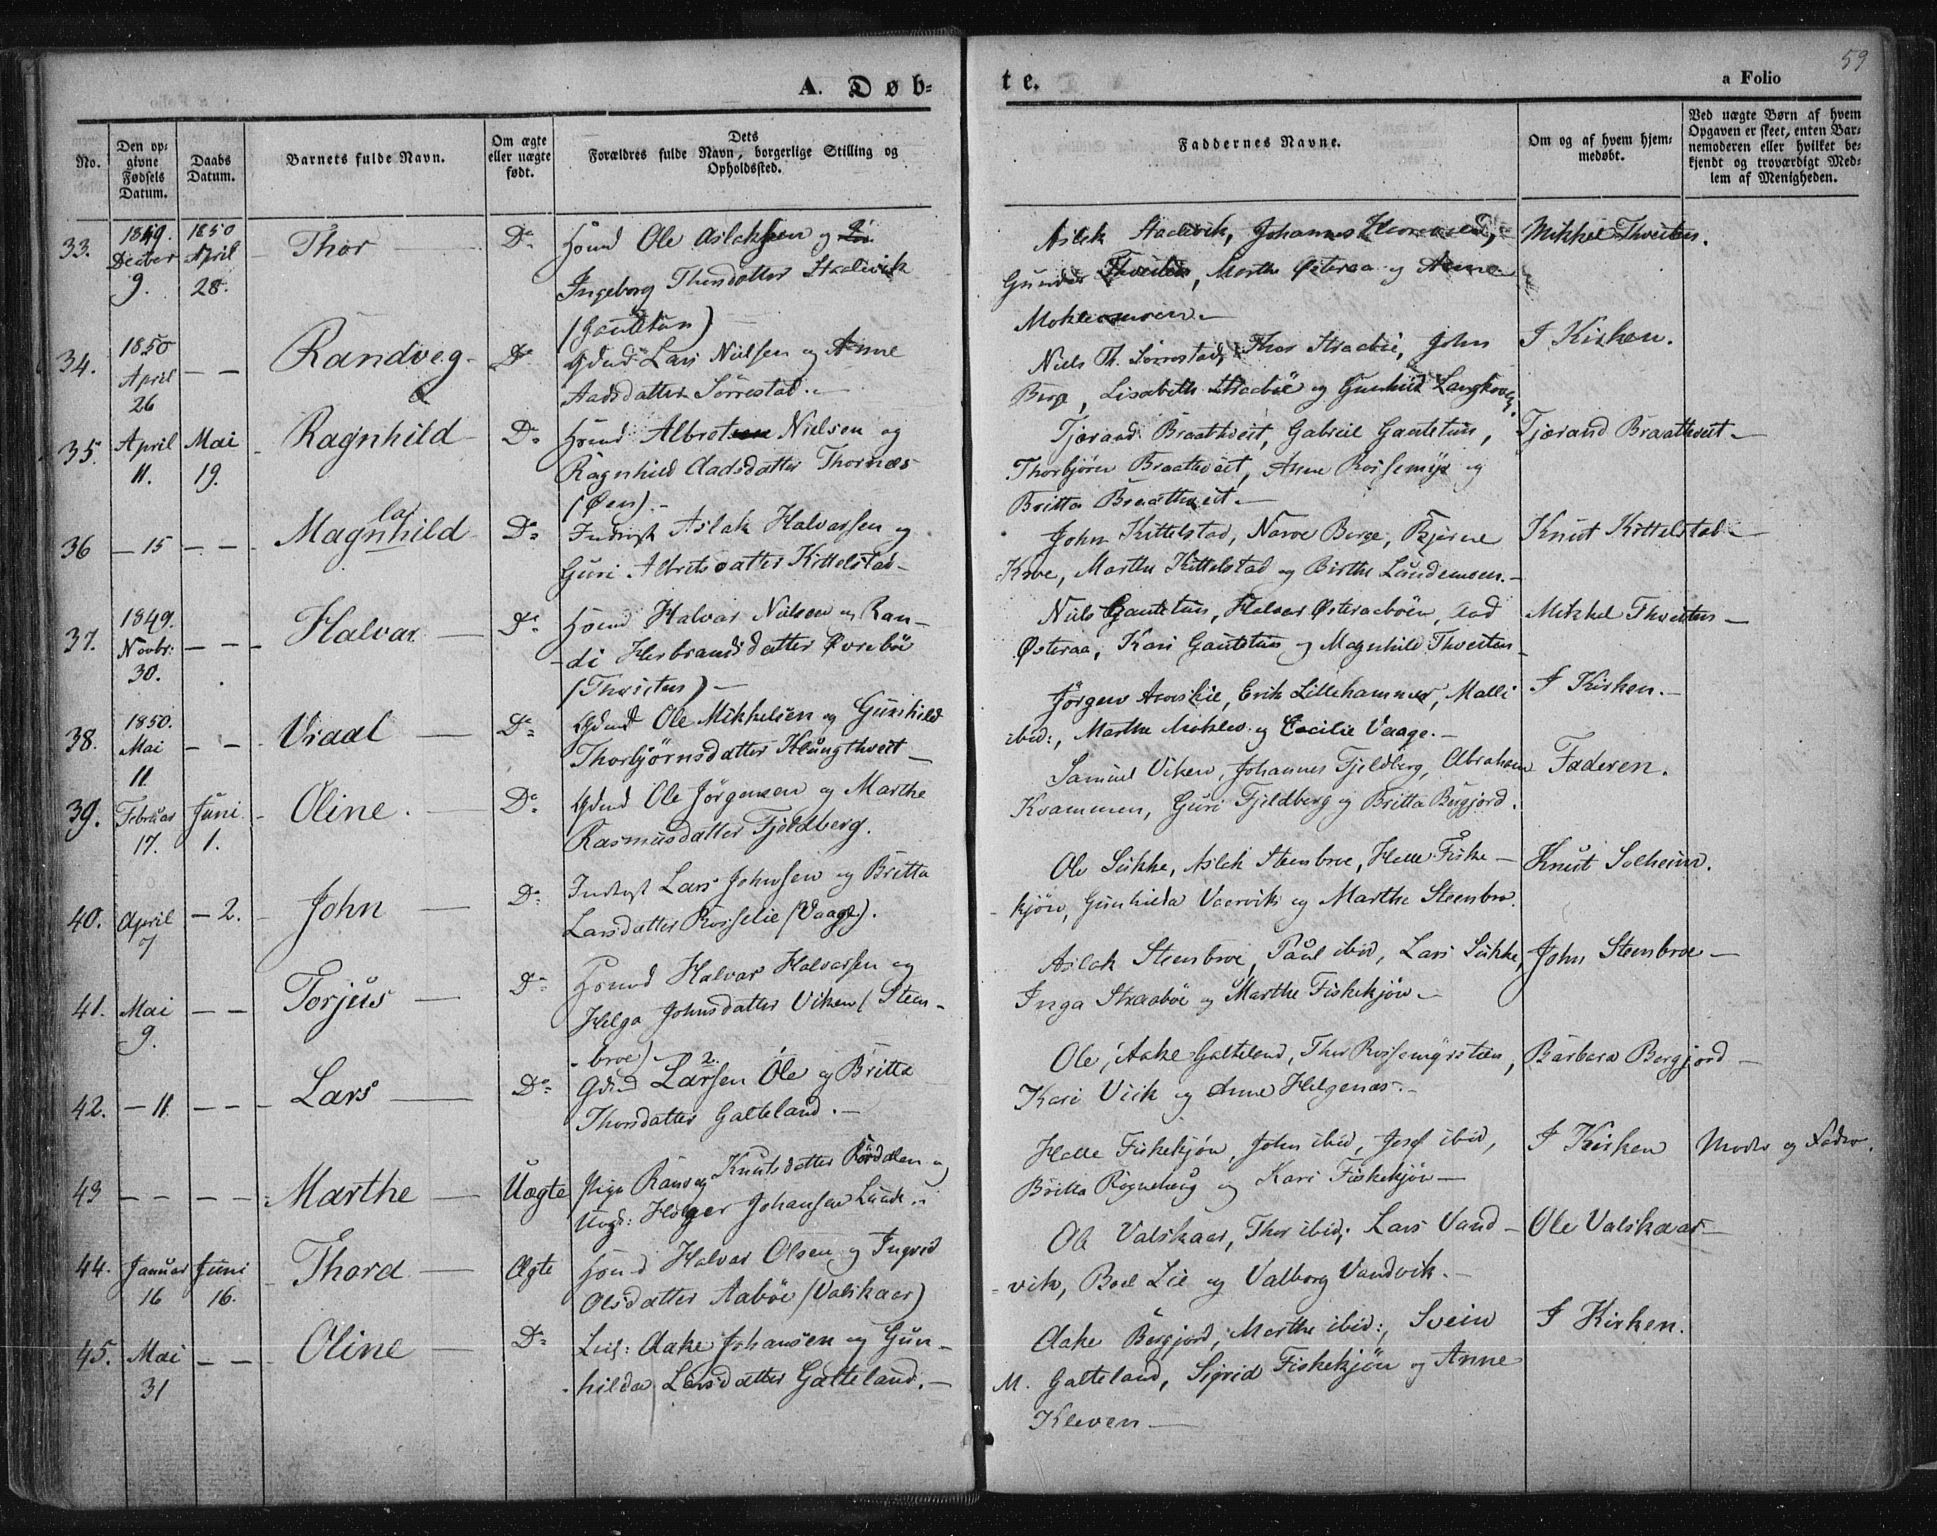 59
A. Døb=
te.
a Folio
No.
Den op=
givne
Fødsels
Datum.
Daabs
Datum.
Barnets fulde Navn.
Om ægte
eller uægte
født.
Dets
Forældres fulde Navn, borgerlige Stilling og
Opholdssted.
Faddernes Navne.
Om og af hvem hjem=
medøbt.
Ved uægte Børn af hvem
Opgaven er skeet, enten Bar=
nemoderen eller hvilket be=
kjendt og troværdigt Med=
lem af Menigheden.
33. 1849. Decbr 9. 1850 April 28. Thor Do
Hsmd Ole Aslaksen og
Ingeborg Thorsdatter Straalevik
(Gautetun)
Aslak Straalevik, Johannes
Gunder Thveiten, Marthe Østeraa og Anne
Mokleiven
Mikkel Thveiten.
34. 1850 April 26 — — Randveg Do
Gdmd Lars Nielsen og Anne
Aadsdatter Sørrestad. —
Niels Th. Sørrestad, Thor Straabøe, John
Berge, Lisabeth Straabøe og Gunhild Langkov
I Kirken.
35. April 11. Mai 19. Ragnhild Do
Hsmd Albret Nielsen og
Ragnhild Aadsdatter Thornæs
(Øen). —
Tjærand Braathveit, Gabriel Gautetun,
Thorbjørn Braathveit, Anne Rossemyr og
Britta Braathveit —
Tjærand Braathveit —
36 — 15 — — Magnhild la Do
Inderst Aslak Halvorsen og
Guri Albretsdatter Kittelstad —
John Kittelstad, Narve Berge, Bjørne
Kroe, Marthe Kittelstad og Birthe Landemoen. —
Knut Kittelstad —
37. 1849. Novbr: 30. — — Halvar — Do
Hsmd Halvar Nielsen og Ran —
— di Herbrandsdatter Øvrebøe
(Thveiten) —
Niels Gautetun, Halvor Østeraabøen, Aad
Østeraa, Kari Gautetun og Magnhild Thveiten
Mikkel Thveiten —
38. 1850. Mai 11 — — Vraal — Do
Gdmd Ole Mikkelsen og Gunhild
Thorbjørnsdatter Klungthveit —
Jørgen Aaslie, Erik Lillehammer, Malli
ibid:, Marthe Moklev og Cecilie Vaage. —
I Kirken. —
39. Februar 17. Juni 1. Oline. — Do
Gdmd Ole Jørgensen og Marthe
Rasmusdatter Fjeldberg.
Samuel Viken, Johannes Fjeldberg, Abraham
Kvammen, Guri Fjeldberg og Britta Bergjord.
Faderen.
40. April 7 — 2. John — Do
Inderst Lars Johnsen og Britta
Larsdatter Rosselie (Vaage).
Ole Lukke, Aslak Steenbroe, Helle Fiske —
kjøn, Gunhilda Vaarvik og Marthe Steenbro.
Knut Solheim.
41. Mai 9. — — Torjus — Do
Hsmd Halvar Halvorsen og
Helga Johnsdatter Viken (Steen —
— broe) —
Aslak Steenbroe, Paul ibid, Lars Lukke,
Inga Straabøe og Marthe Fiskekjøn —
John Steenbroe —
42. — 11. — — Lars — Do
Gdmd Larsen 2. Ole og Britta
Thorsdatter Galteland. —
Ole, Aake Galteland, Thor Rossemyrsteen,
Kari Viik og Anne Helgenæs. —
Barbara Bergjord —
43 — — — — Marthe — Uægte
Pige Ranveg Knutsdatter Rørdalen og
Ungk: Holger Johansen Lunde. —
Helle Fiskekjøn, John ibid, Josef ibid,
Britta Rognehaug og Kari Fiskekjøn —
I Kirken
Moder og Fader.
44. Januar 16 Juni 16. Thora — Ægte
Hsmd Halvar Olsen og Ingrid
Olsdatter Aabøe (Valskaar)
Ole Valskaar, Thor ibid, Lars Vand —
— vik, Boel Lie og Valborg Vandvik. —
Ole Valskaar —
45. Mai 31 — — Oline — Do
Leil: Aake Johansen og Gun —
— hilda Larsdatter Galteland. —
Aake Bergjord, Marthe ibid:, Svein
M. Galteland, Sigrid Fiskekjøn og Anne
Kleven —
I Kirken.